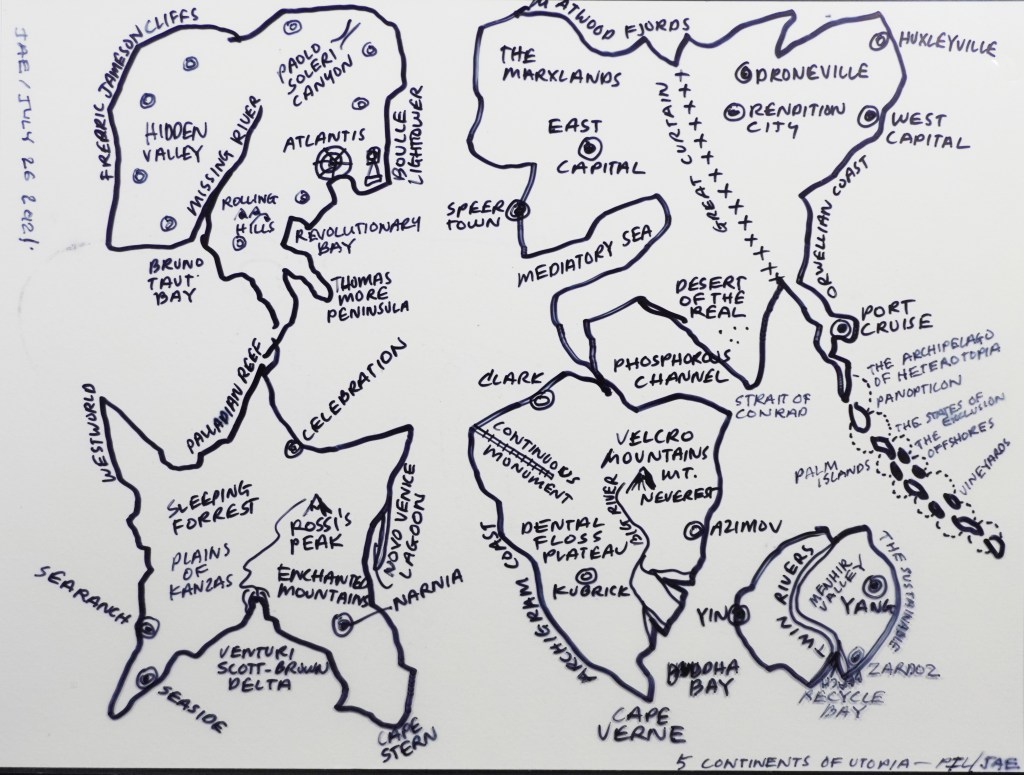 JAE/JULY 26 2021.
FREDRIC JAMESON CLIFFS
HIDDEN
VALLEY
MISSING RIVER
PAOLO
SOLERI
CANYON
ATLANTIS
BOULLE
LIGHTOWER
ROLLING
HILLS
REVOLUTIONARY
BAY
BRUNO
TAUT
BAY
THOMAS
MORE
PENINSULA
M ATWOOD FJORDS
THE
MARXLANDS
EAST
CAPITAL
SPEER
TOWN
MEDIATORY SEA
GREAT CURTAIN
DRONEVILLE
RENDITION
CITY
HUXLEYVILLE
WEST
CAPITAL
ORWELLIAN COAST
DESERT
OF THE
REAL
PORT
CRUISE
PHOSPHOROUS
CHANNEL
STRAIT OF
CONRAD
THE ARCHIPELAGO
OF HETEROTOPIA
PANOPTICON
THE STATES OF
THE EXCLUSION
OFFSHORES
VINEYARDS
PALM
ISLANDS
WESTWORLD
PALLADIAN REEF
CELEBRATION
SLEEPING
FORREST
PLAINS
OF
KANZAS
ROSSI'S
PEAK
ENCHANTED
MOUNTAINS
NOVO VENICE
LAGOON
NARNIA
SEARANCH
SEASIDE
VENTURI
SCOTT-BROWN
DELTA
CAPE
STERN
CLARK
CONTINUOUS
MONUMENT
VELCRO
MOUNTAINS
MT.
NEVEREST
RIVER
DENTAL
FLOSS
PLATEAU
KUBRICK
AZIMOV
ARCHIGRAM COAST
BUDDHA
BAY
CAPE
VERNE
YIN
TWIN RIVERS
MENHIR
VALLEY
YANG
THE SUSTAINABLE
ZARDOZ
RECYCLE
BAY
5 CONTINENTS OF UTOPIA — /JAE